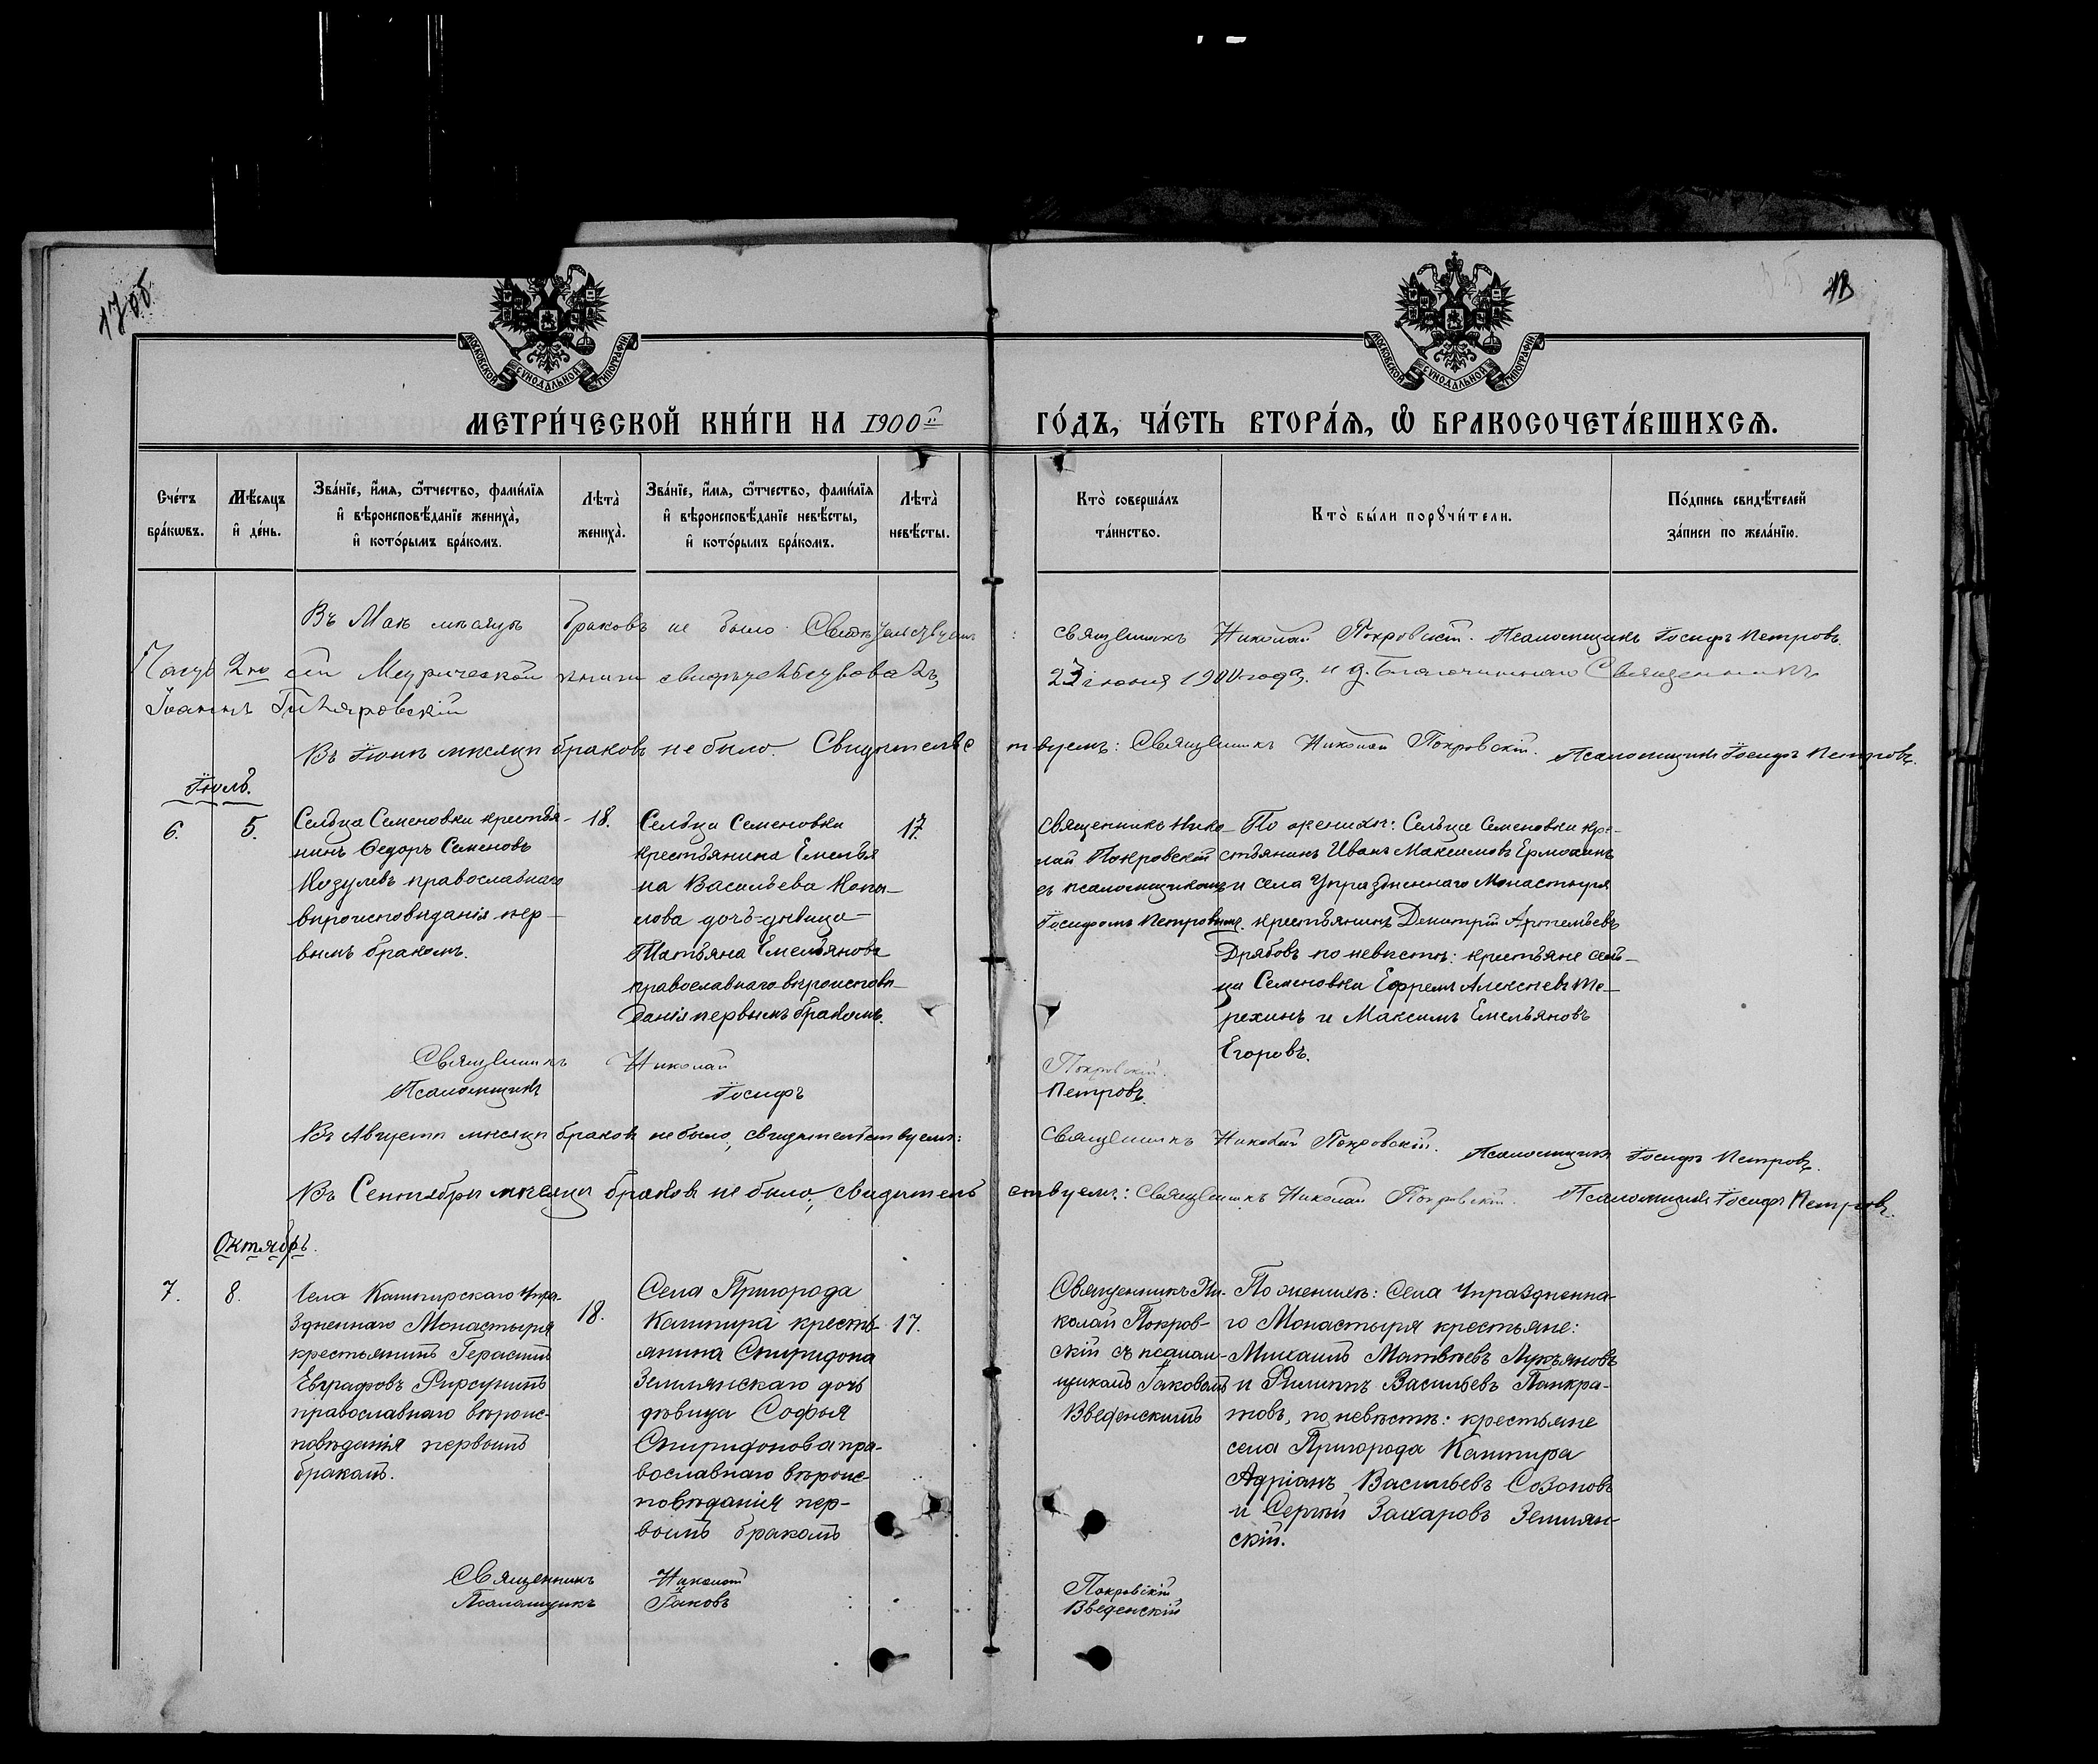 17об
18
МОСКОВСКОЙ СѴНОДАЛЬНОЙ ТИПОГРАФІИ
МОСКОВСКОЙ СѴНОДАЛЬНОЙ ТИПОГРАФІИ
МЕТРИ́ЧЕСКОЙ КНИ́ГИ НА 1900й ГО́ДЪ, ЧА́СТЬ ВТОРА́Ѧ, Ѽ БРАКОСОЧЕТА́ВШИХСѦ.
Сче́тъ
бра́кѡвъ.
Мѣ́сѧцъ
и҆ де́нь.
Зва́нїе, и҆́мѧ, ѻ҆́тчество, фами́лїѧ
и҆ вѣроисповѣ́данїе жениха̀,
и҆ кото́рымъ бра́комъ.
Лѣта̀
жениха̀.
Зва́нїе, и҆́мѧ, ѻ҆́тчество, фами́лїѧ
и҆ вѣроисповѣ́данїе невѣ́сты,
и҆ кото́рымъ бра́комъ.
Лѣта̀
невѣ́сты.
Кто̀ соверша́лъ
та́инство.
Кто̀ бы́ли порꙋчи́тели.
По́дпись свидѣ́телей
за́писи по жела́нїю.
Въ Маѣ мѣсяцѣ браковъ не было. Свидѣтельствуемъ: Священникъ Николай Покровскій. Псаломщикъ Іосифъ Петровъ.
Часть 2ю сей Метрической книги свидѣтельствовалъ, 23 іюня 1900 года, и д. Благочиннаго Священникъ
Іоаннъ Гиляровскій
Въ Іюнѣ мѣсяцѣ браковъ не было. Свидѣтельствуемъ: Священникъ Николай Покровскій. Псаломщикъ Іосифъ Петровъ.
Іюль.
6.
5.
Сельца Семеновки крестья-
нинъ Ѳедоръ Семеновъ
православнаго
вѣроисповѣданія пер-
вымъ бракомъ.
18.
Сельца Семеновки
крестьянина Емелья
на Васильева
дочь-дѣвица
Татьяна Емельянова
православнаго вѣроисповѣ-
данія первымъ бракомъ.
17.
Священникъ Нико-
лай Покровскій
съ псаломщикомъ
Іосифомъ Петровымъ.
По женихѣ: Сельца Семеновки кре-
стьянинъ Иванъ Максимовъ Ермохинъ
и села Упраздненнаго Монастыря
крестьянинъ Димитрій Артемьевъ
Дрябовъ по невѣстѣ: крестьяне сель-
ца Семеновки Ефремъ Алексѣевъ Те-
рехинъ и Максимъ Емельяновъ
Егоровъ.
Священникъ Николай Покровскій.
Псаломщикъ Іосифъ Петровъ.
Въ Августѣ мѣсяцѣ браковъ не было, свидѣтельствуемъ: Священникъ Николай Покровскій. Псаломщикъ Іосифъ Петровъ.
Въ Сентябрѣ мѣсяцѣ браковъ не было, свидѣтельствуемъ: Священникъ Николай Покровскій. Псаломщикъ Іосифъ Петровъ.
Октябрь.
7.
8.
Села Каширскаго Упра-
здненнаго Монастыря
крестьянинъ Герасимъ
Евграфовъ Фирсунинъ
православнаго вѣроис-
повѣданія первымъ
бракомъ.
18.
Села Пригорода
Кашира кресть-
янина Спиридона
Землянскаго дочь
дѣвица Софья
Спиридонова пра-
вославнаго вѣроис-
повѣданія пер-
вымъ бракомъ
17.
Священникъ Ни-
колай Покров-
скій съ псалом-
щикомъ Іаковомъ
Введенскимъ
По женихѣ: Села Упраздненна-
го Монастыря крестьяне:
Михаилъ Матвѣевъ Лукьяновъ
и Филиппъ Васильевъ Панкра-
товъ, по невѣстѣ: крестьяне
села Пригорода Кашира
Адріанъ Васильевъ Созоновъ
и Сергѣй Захаровъ Землян-
скій.
Священникъ Николай Покровскій
Псаломщикъ Іаковъ Введенскій